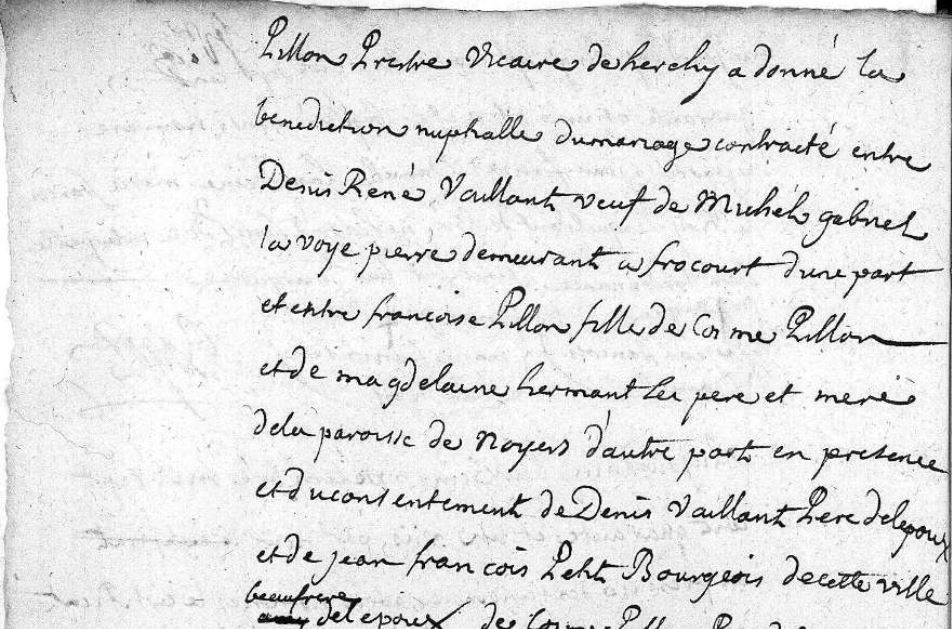 Pillon Prestre Vicaire de herchy a donné la
benediction nuptialle du mariage contracté entre
Denis René Vaillant veuf de Michel gabriel
la voye pierre demeurant a frocourt dune part
et entre francoise Pillon fille de Cosme Pillon
et de magdelaine hermant les pere et mere
dela paroisse de Noyers d'autre part en presence
et du consentement de Denis Vaillant Pere delepoux
et de jean francois Petit Bourgeois decette ville
beaufrere
delepoux de Cosme Pillon